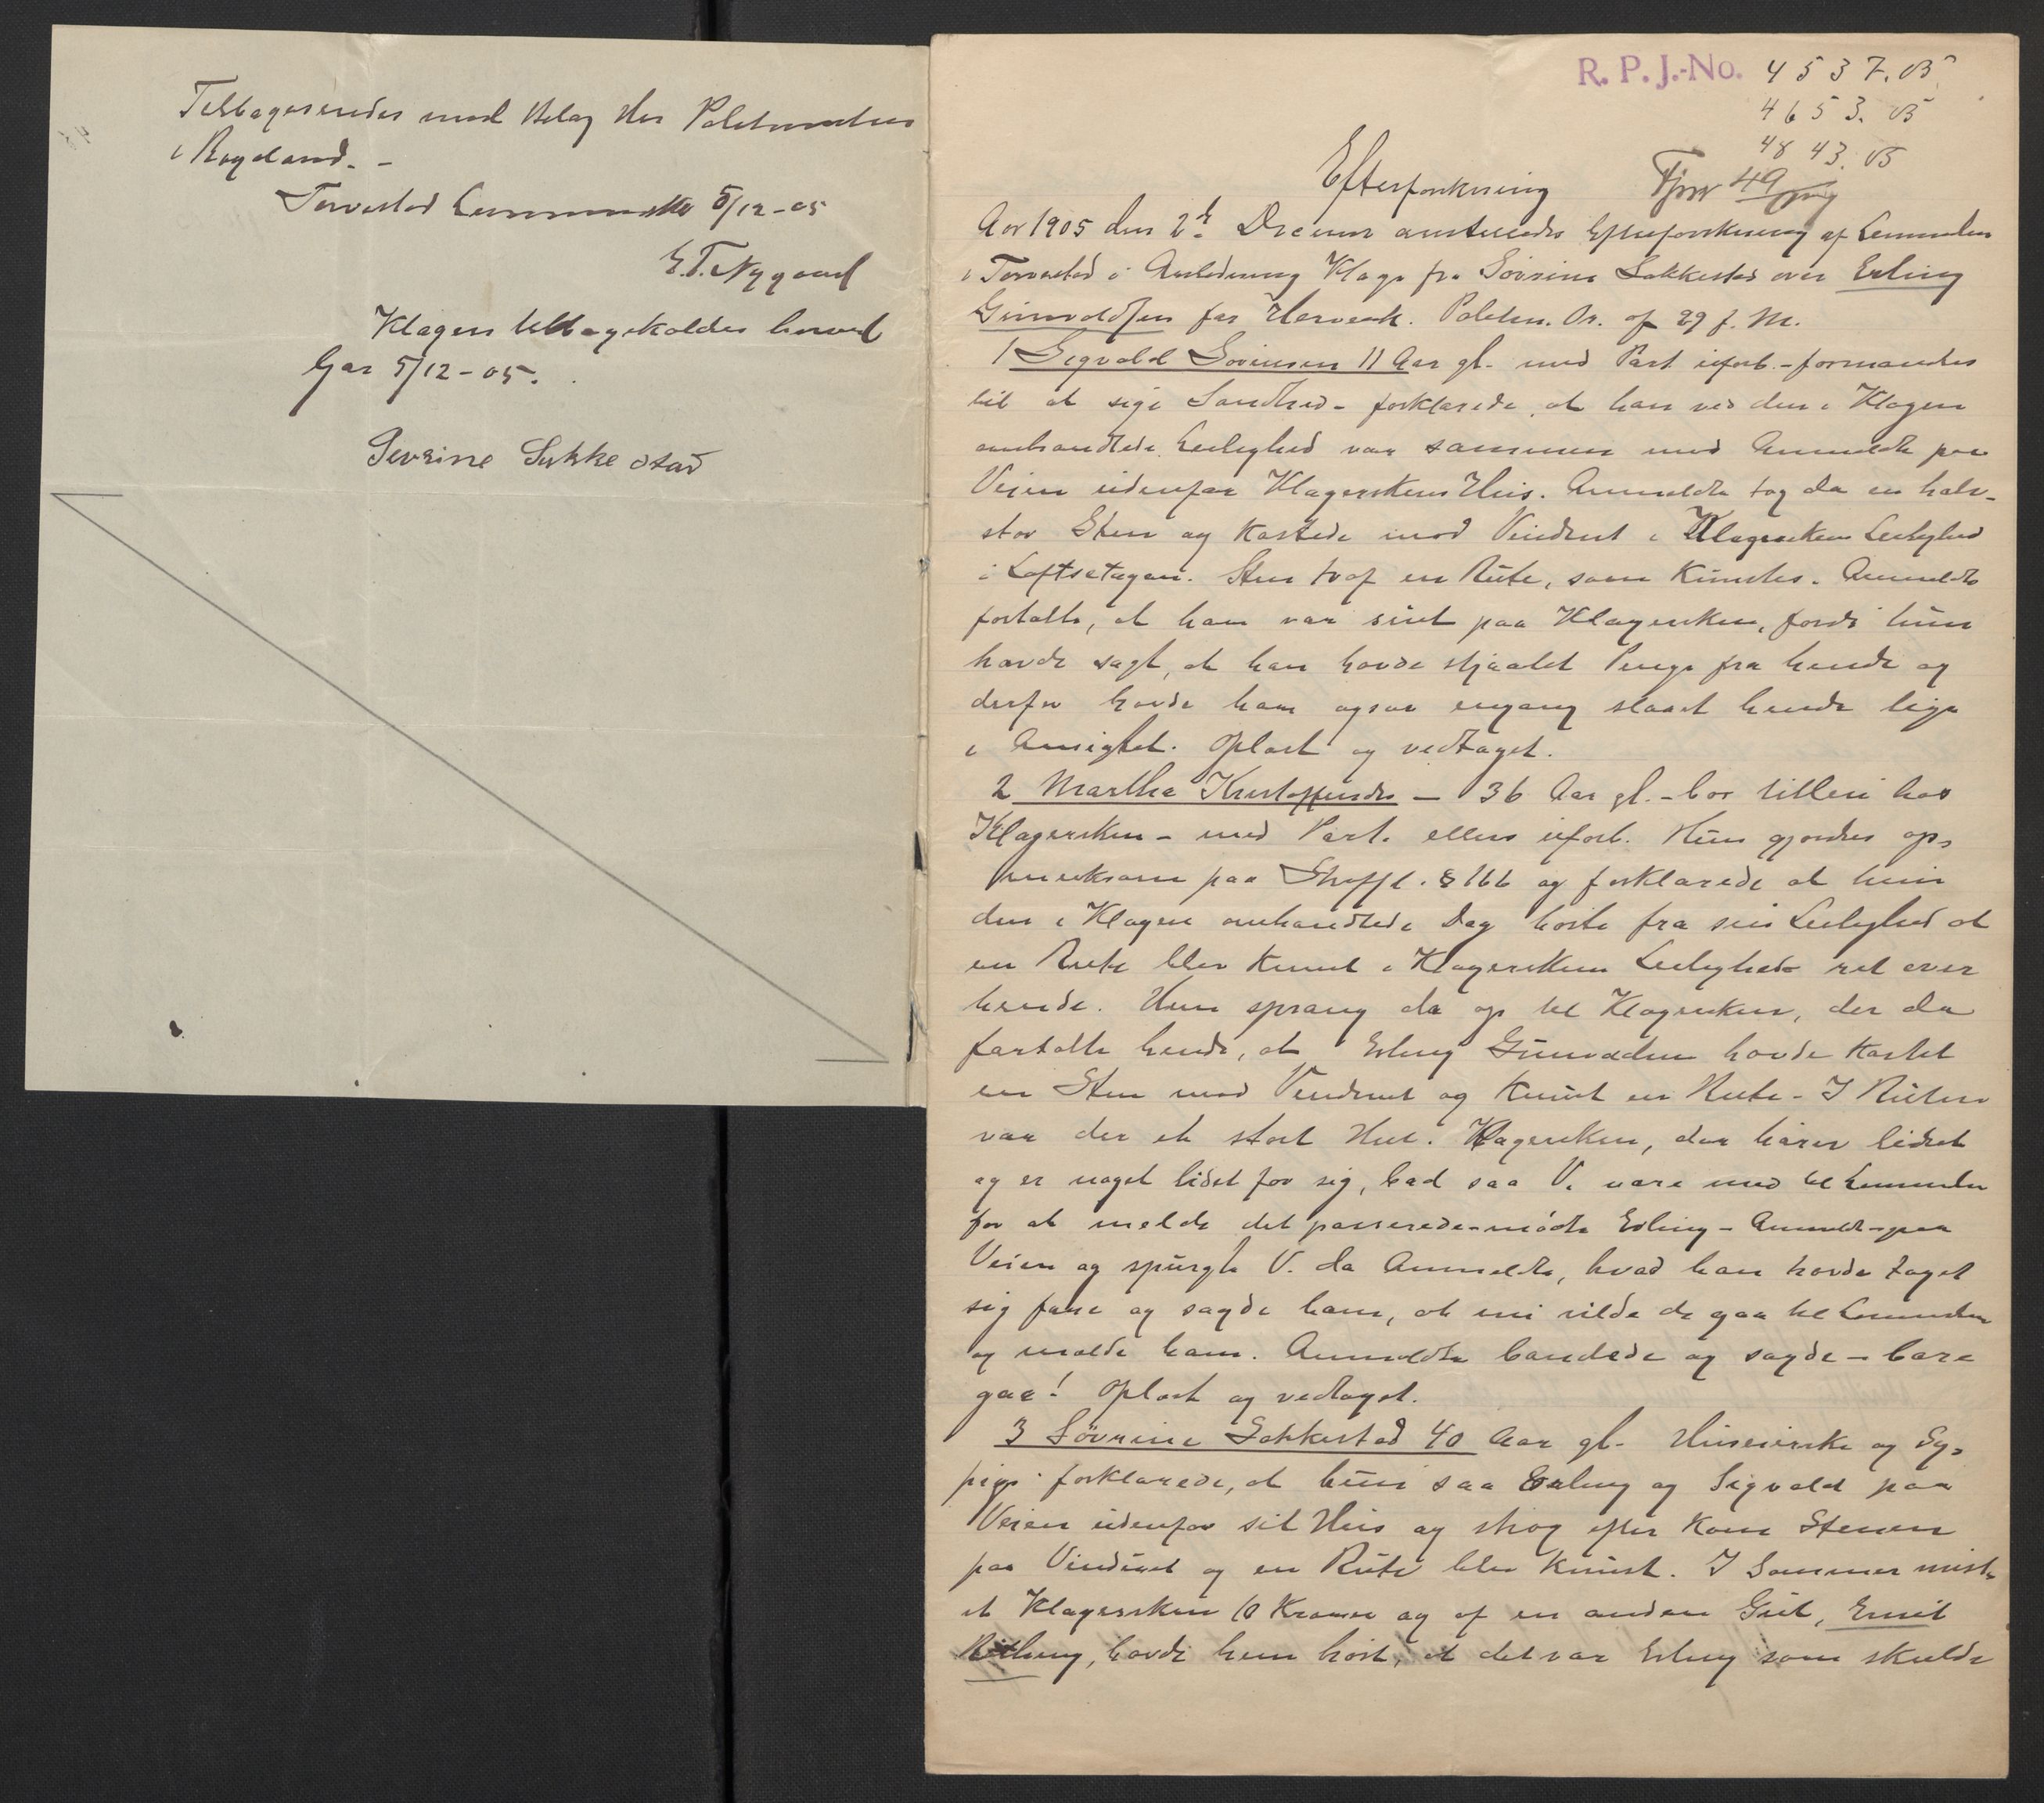 Tilbagesendes med Bilag Hr Politimesteren
i Rogaland. -
Torvestad Lensmandsktr 5/12-05
E.T. Nygaard
Klagen tilbagekaldes herved
Gar 5/12-05.
Sevrine Sukkestad
R. P. J.-No. 4537.05
4653.05
4843.05
Efterforskning
49
Aar 1905 den 2d Decembr anstilledes Efterforskning af Lensmanden
i Torvestad i Anledning Klage fra Sövrine Sakkestad over Erling
Grimvoldsen for Hærverk. Politim. Or. af 29 f. M.
1 Sigvald Sörensen 11 Aar gl. med Part uforb. - formanedes
til at sige Sandhed - forklarede, at han ved den i Klagen
omhandlede Leilighed var sammen med Anmeldte paa
Veien udenfor Klagerskens Hus. Anmeldte tog da en halv-
stor Sten og kastede mod Vinduet i Klagerskens Leilighed
i Loftsetagen. Sten traf en Rute, som knustes. Anmeldte
fortalte, at han var sint paa Klagersken, fordi hun
havde sagt, at han havde stjaalet Penge fra hende og
derfor havde han ogsaa engang slaaet hende lige
i Ansigtet. Oplæst og vedtaget.
2 Martha Kristoffersdtr - 36 Aar gl. - bor tilleie hos
Klagersken - med Part. ellers uforb. Hun gjordes op-
merksom paa Straffl. § 166 og forklarede at hun
den i Klagen omhandlede Dag hörte fra sin Leilighed at
en Rute blev knust i Klagerskens Leilighed ret over
hende. Hun sprang da op til Klagersken, der da
fortalte hende, at Erling Grimvoldsen havde kastet
en Sten mod Vinduet og knust en Rute. I Ruten
var der et stort Hul. Klagersken, der hörer lidet
og er noget lidet for sig, bad saa V. være med til Lensmanden
for at melde det passerede - mödte Erling - Anmeldte - paa
Veien og spurgte V. da Anmeldte, hvad han havde taget
sig fore og sagde ham, at nu vilde de gaa til Lensmanden
og melde ham. Anmeldte bandede og sagde - bare
gaa! Oplæst og vedtaget.
3 Sövrine Sakkestad 40 Aar gl. Huseierske og Sy-
pige forklarede, at hun saa Erling og Sigvald paa
Veien udenfor sit Hus og strax efter kom Stenen
paa Vinduet og en Rute blev knust. I Sommer mist-
et Klagersken 10 Kroner og af en anden Gut, Emil
havde hun hört, at det var Erling som skulde